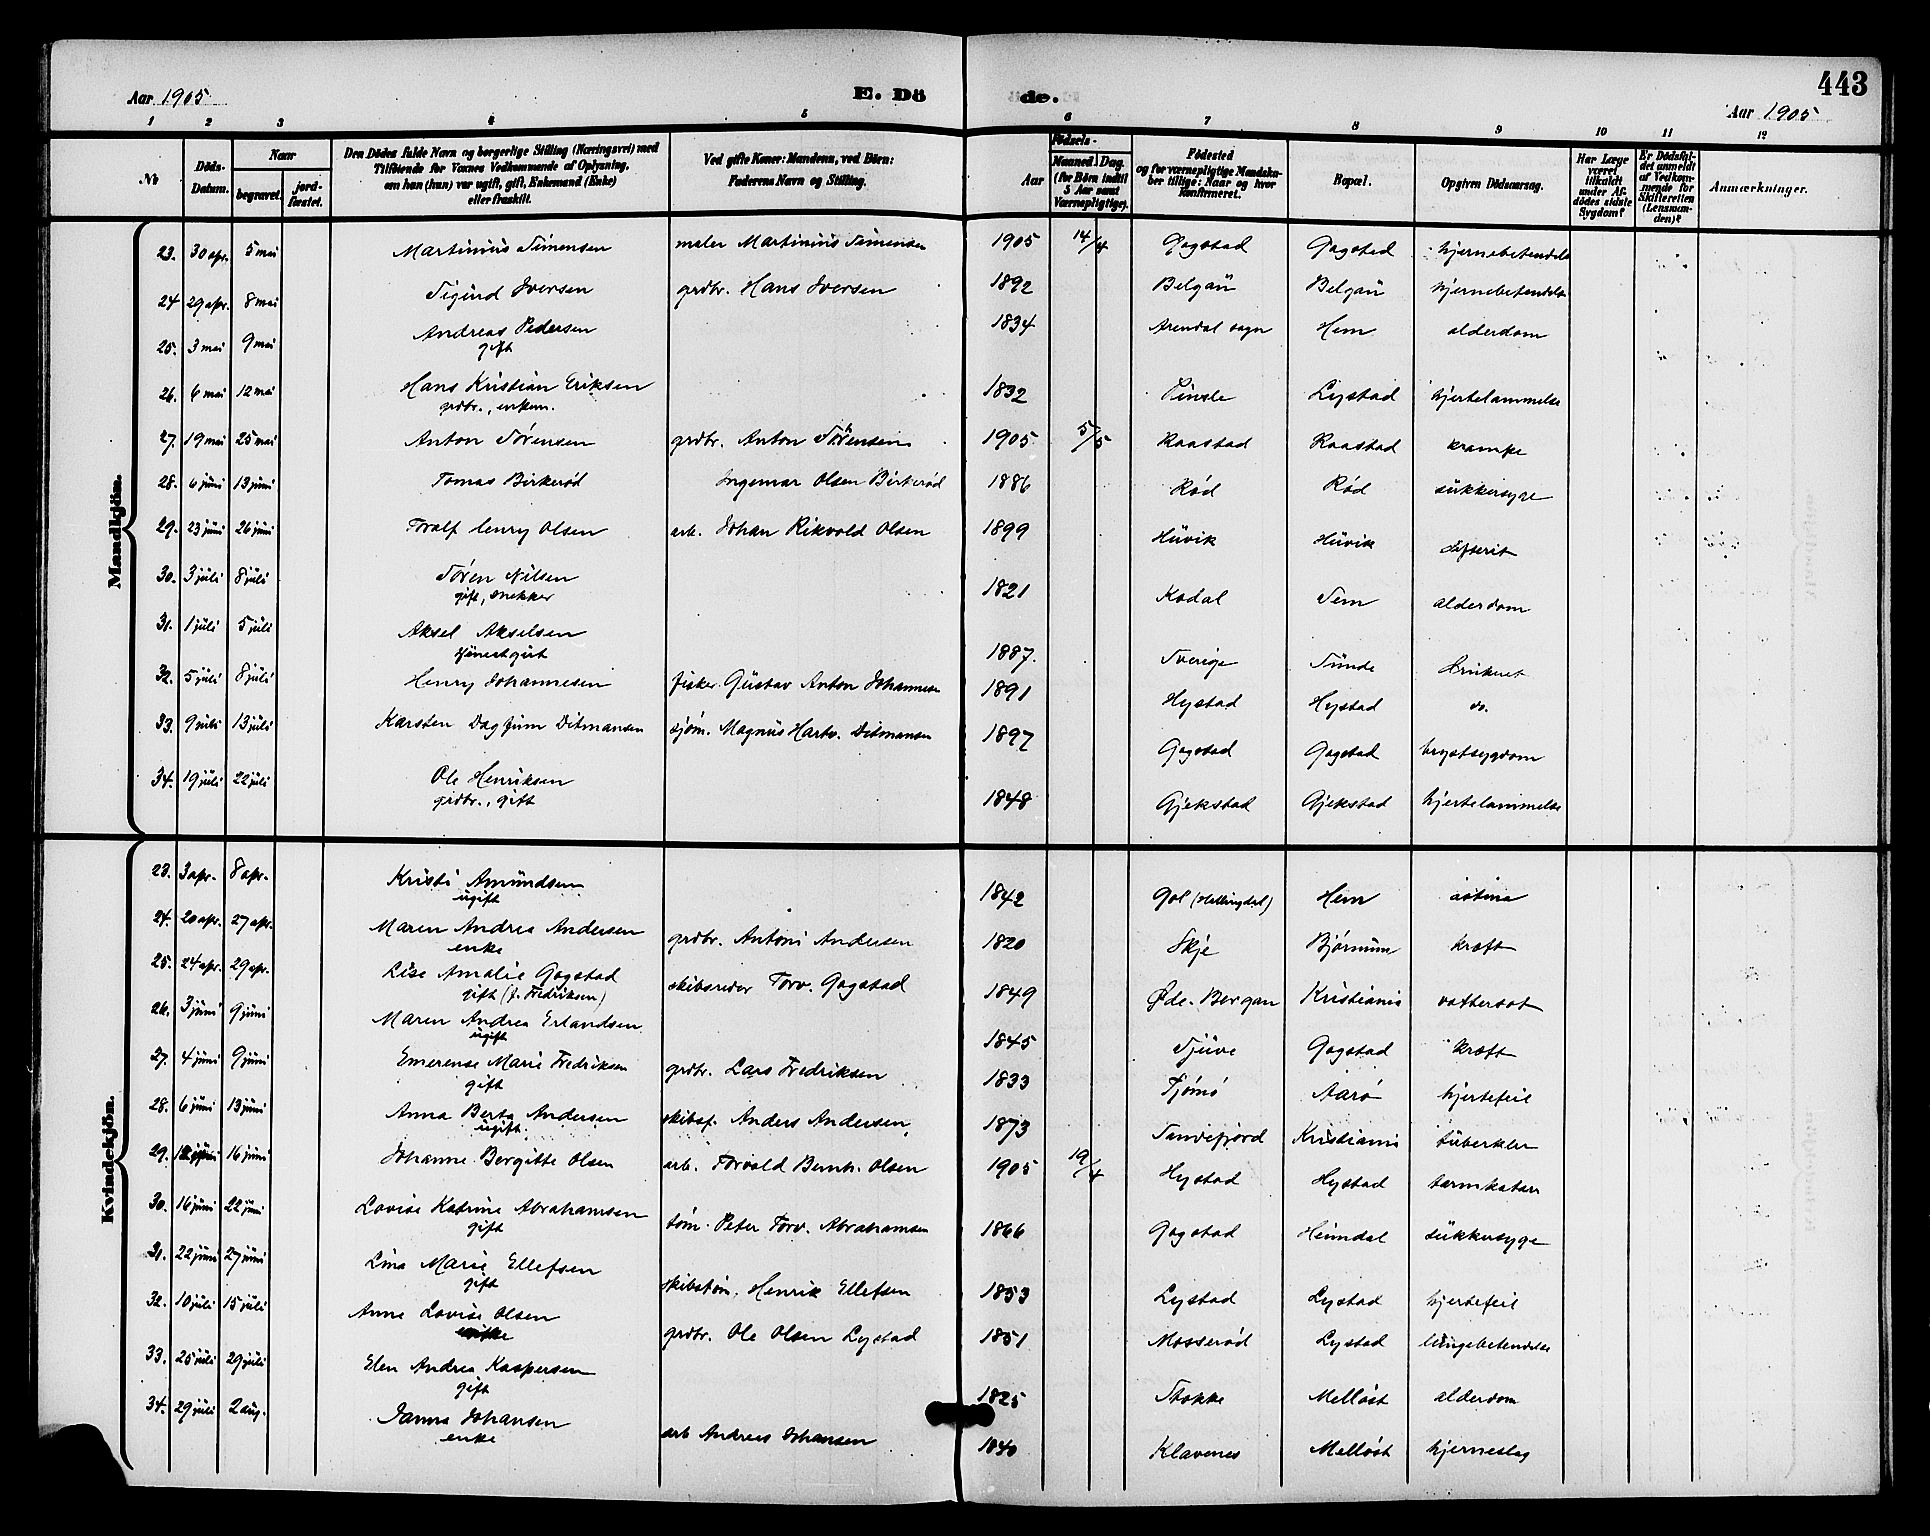 443
Aar 1905
E. Dö de.
Aar 1905
1 2 3 4 5 6 7 8 9 10 11 12
No
Døds-Datum.
Naar
begravet.
jordfæstet.
Den Dödes fulde Navn og borgerlige Stilling (Næringsvei) med Tilföiende for Voxnes Vedkommende af Oplysning, om han (hun) var ugift, gift, Enkemand (Enke) eller fraskilt.
Ved gifte Koner: Mandens, ved Börn: Faderens Navn og Stilling.
Födsels-
Aar
Maaned. Dag.
(for Börn indtil 5 Aar samt Værnepligtige).
Födested og for værnepligtige Mandskaber tillige: Naar og hvor konfirmeret.
Bopæl.
Opgiven Dödsaarsag.
Har Læge været tilkaldt under Afdödes sidste Sygdom?
Er Dödsfaldet anmeldt af Vedkommende for Skifteretten (Lensmanden)?
Anmærkninger.
Mandkjön.
23. 30 apr. 5 mai Martinius Simensen maler Martinius Simensen 1905 14/4 Gogstad Gogstad hjernebetendelse
24 29 apr. 8 mai Sigurd Iversen grdbr. Hans Iversen 1892 Belgau Belgau hjernebetendelse
25. 3 mai 9 mai Andreas Pedersen 1834 Arendal sogn Hem alderdom
gift
26. 6 mai 12 mai Hans Kristian Eriksen 1832 Pinsle Lystad hjertelammelse
grdbr., enkem.
27. 19 mai 25 mai Anton Sørensen grdbr. Anton Sørensen 1905 5/5 Raastad Raastad krampe
28. 6 juni 13 juni Tomas Birkerød Ingemar Olsen Birkerød 1886 Rød Rød sukkersyge
29. 23 juni 26 juni Toralf Henry Olsen arb. Johan Rikvold Olsen 1899 Huvik Huvik difterit
30. 3 juli 8 juli Søren Nilsen 1821 Kodal Sem alderdom
gift, snekker
31. 1 juli 5 juli Aksel Akselsen 1887. Sverige Sunde druknet
tjenestgut
32. 5 juli 8 juli Henry Johannesen fisker Gustav Anton Johannesen 1891 Hystad Hystad do.
33. 9 juli 13 juli Karsten Dagfinn Ditmansen sjøm. Magnus Hartv. Ditmansen 1897 Gogstad Gogstad brystsygdom
34. 19 juli 22 juli Ole Henriksen 1848 Gjekstad Gjekstad hjertelammelse
grdbr., gift
Kvindekjön.
23. 3 apr. 8 apr. Kristi Amundsen 1842 Gol (Hallingdal) Hem astma
ugift
24. 20 apr. 27 apr. Maren Andrea Andersen grdbr. Antoni Andersen 1820 Skje Bjørnum kræft
enke
25. 24 apr. 29 apr. Lise Amalie Gogstad skibsreder Torv. Gogstad 1849 Øde-Bergan Kristiania vattersot
gift (f. Fredriksen)
26. 3 juni 9 juni Maren Andrea Erlandsen 1845 Tjuve Gogstad kræft
ugift
27. 4 juni 9 juni Emerense Marie Fredriksen grdbr. Lars Fredriksen 1833 Tjømø Aarø hjertefeil
gift
28. 6 juni 13 juni Anna Berta Andersen skibsf. Anders Andersen 1873 Sandefjord Kristiania tuberkler
ugift
29. 12 juni 16 juni Johanne Bergitte Olsen arb. Torvald Bernh. Olsen 1905 19/4 Hystad Hystad tarmkatarr
30. 16 juni 22 juni Lovise Katrine Abrahamsen tøm. Peter Torv. Abrahamsen 1866 Gogstad Heimdal sukkersyge
gift
31. 22 juni 27 juni Lina Marie Ellefsen skibstøm. Henrik Ellefsen 1853 Lystad Lystad hjertefeil
gift
32. 10 juli 15 juli Anne Lovise Olsen grdbr. Ole Olsen Lystad 1851 Mosserød Lystad lungebetendelse
33. 25 juli 29 juli Elen Andrea Kaspersen 1825 Stokke Melløst alderdom
gift
34. 29 juli 2 aug. Janna Johansen arb Andreas Johansen 1840 Klavenes Melløst hjerneslag
enke